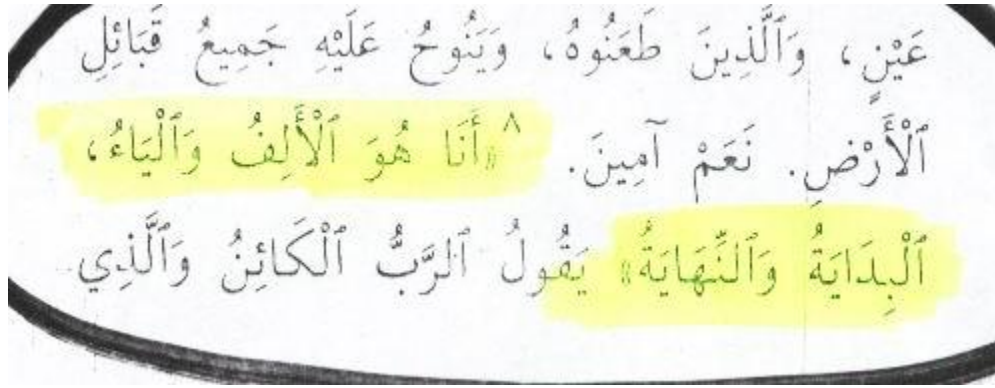 عَيْنٍ، وَٱلَّذِينَ طَعَنُوهُ، وَيَنُوحُ عَلَيْهِ جَمِيعُ قَبَائِلِ
ٱلْأَرْضِ. نَعَمْ آمِينَ. ٨ «أَنَا هُوَ ٱلْأَلِفُ وَٱلْيَاءُ،
ٱلْبِدَايَةُ وَٱلنِّهَايَةُ» يَقُولُ ٱلرَّبُّ ٱلْكَائِنُ وَٱلَّذِي